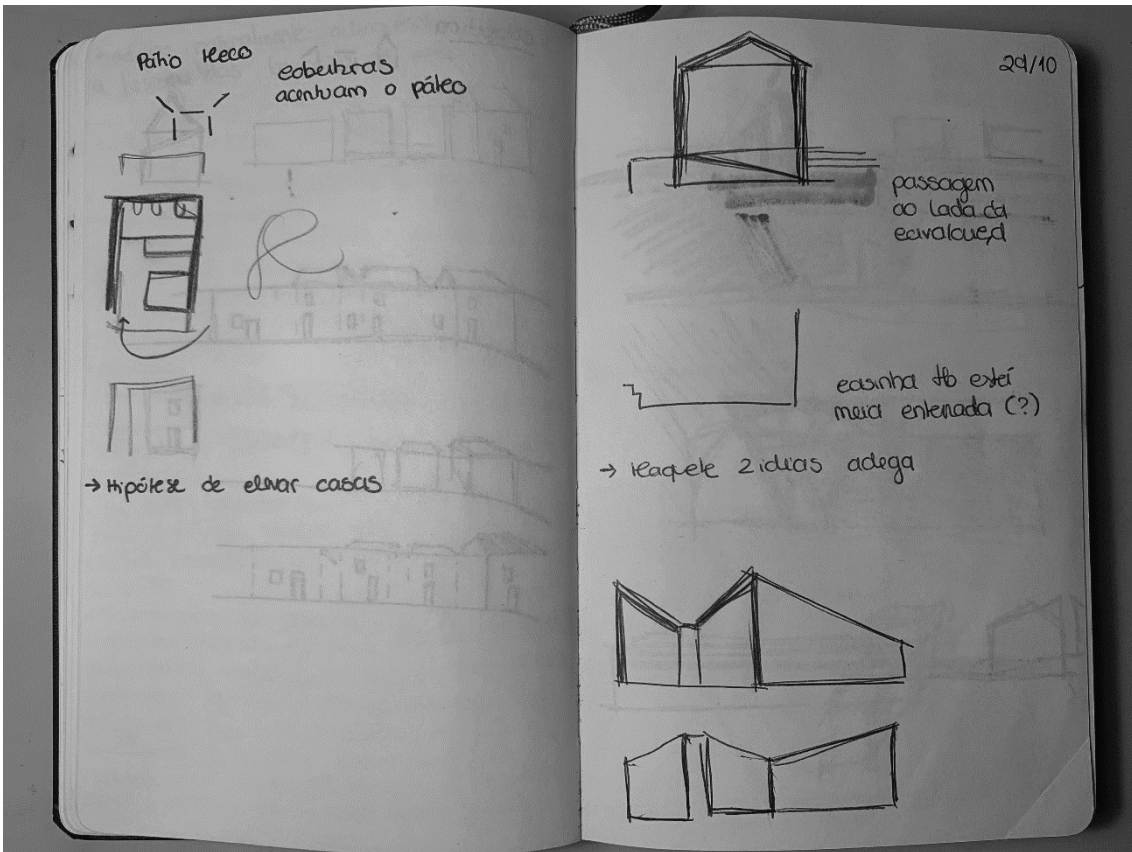 Pátio seco
coberturas
acentuam o páteo
→ Hipótese de elevar casas
29/10
passagem
ao lado da
casinha tb está
meia enterrada (?)
→ 2 ideias adega